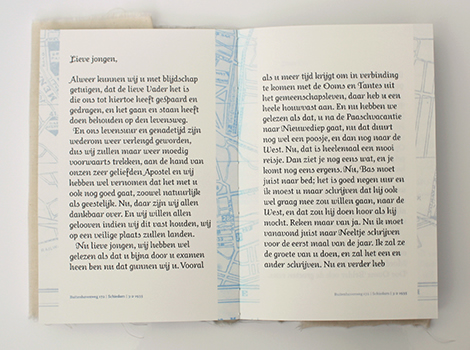 Lieve jongen,
Alweer kunnen wij u met blijdschap
getuigen, dat de lieve Vader het is
die ons tot hiertoe heeft gespaard en
gedragen, en het gaan en staan heeft
doen behouden op den levensweg.
En ons levensuur en genadetijd zijn
wederom weer verlengd geworden,
dus wij zullen maar weer moedig
voorwaarts trekken, aan de hand van
onzen zeer geliefden Apostel en wij
hebben wel vernomen dat het met u
ook nog goed gaat, zoowel natuurlijk
als geestelijk. Nu, daar zijn wij allen
dankbaar over. En wij willen allen
gelooven indien wij dit vast houden, wij
op een veilige plaats zullen landen.
Nu lieve jongen, wij hebben wel
gelezen als dat u bijna door u examen
heen ben nu dat gunnen wij u. Vooral
als u meer tijd krijgt om in verbinding
te komen met de Ooms en Tantes uit
het gemeenschapsleven, daar heb u een
heele houwvast aan. En nu hebben we
gelezen als dat, u na de Paaschvacantie
naar Nieuwediep gaat, nu dat duurt
nog wel een poosje, en dan nog naar de
West. Nu, dat is heelemaal een mooi
reisje. Dan ziet je nog eens wat, en je
komt nog eens ergens. Nu, Bas moet
juist naar bed; het is goed negen uur en
ik moest u maar schrijven dat hij ook
wel graag mee zou willen gaan, naar de
West, en dat zou hij doen hoor als hij
mocht. Reken maar van ja. Nu ik moet
vanavond juist naar Neeltje schrijven
voor de eerst maal van de jaar. Ik zal ze
de groete van u doen, en zal het een en
ander schrijven. Nu en verder heb